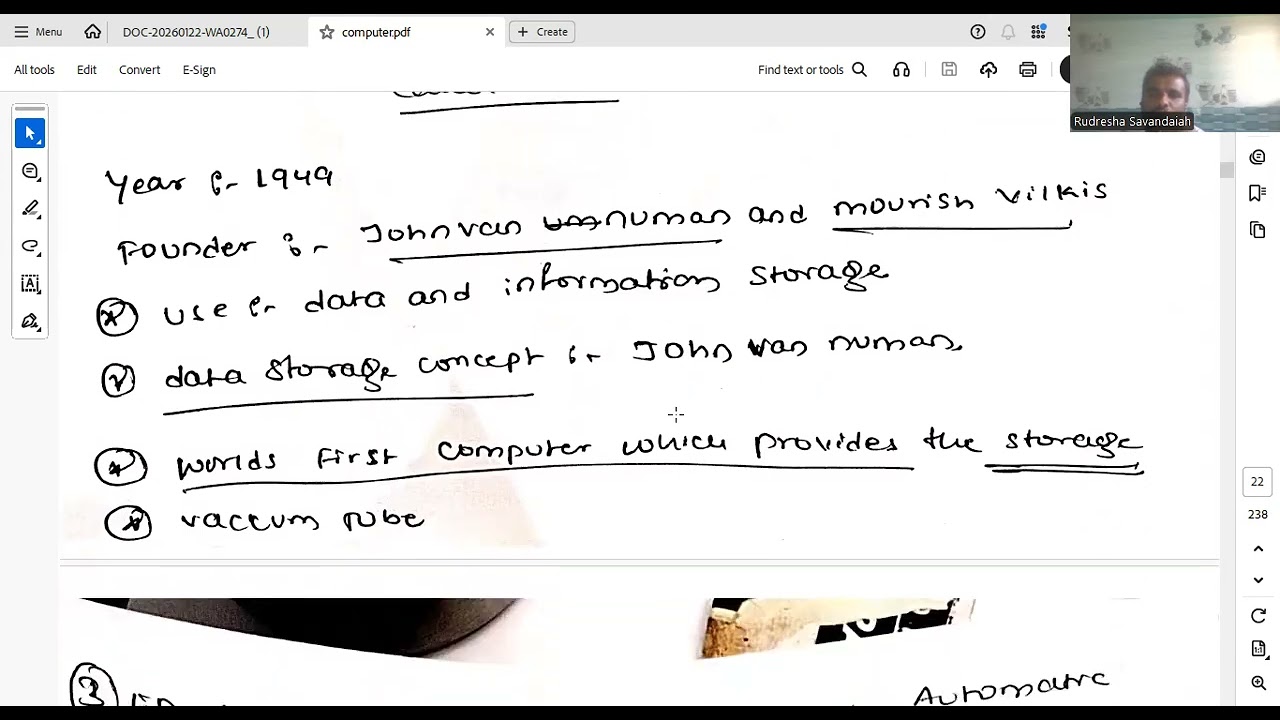 Menu
DOC-20260122-WA0274_ (1)
computer.pdf
Create
All tools Edit Convert E-Sign
Find text or tools
Rudresha Savandaiah
Year :- 1949
Founder :- John van numan and mourish vilkis
use :- data and information storage
data storage concept :- John van numan.
worlds first computer which provides the storage
vaccum tube
22
238
3
Automatic